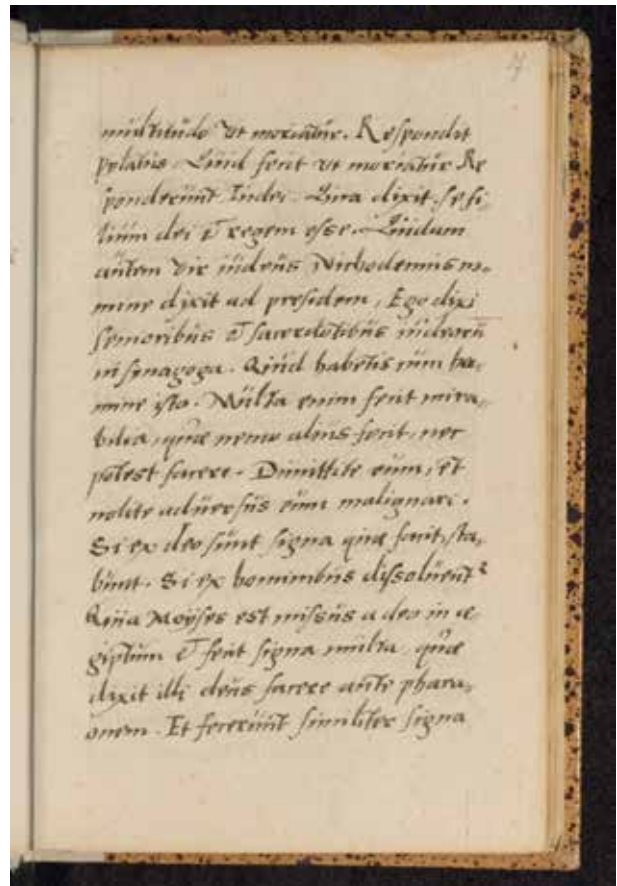 17
multitudo vt moriatur. Respondit
pylatus. Quid fecit vt moriatur Re
sponderunt Iudei. Quia dixit se fi,
lium dei & regem esse. Quidam
autem vir iudeus Nichodemus no,
mine dixit ad presidem, Ego dixi
senioribus & sacerdotibus iudeorū
in sinagoga. Quid habetis cum ho,
mine isto. Multa enim fecit mira,
bilia, quæ nemo alius fecit, nec
potest facere. Dimittite eum, et
nolite aduersus eum malignari.
Si ex deo sunt signa quæ facit, sta,
bunt. Si ex hominibus dissoluent²
Quia Moÿses est missus a deo in æ
giptum & fecit signa multa, quæ
dixit illi deus facere ante phara,
onem. Et fecerunt similiter signa